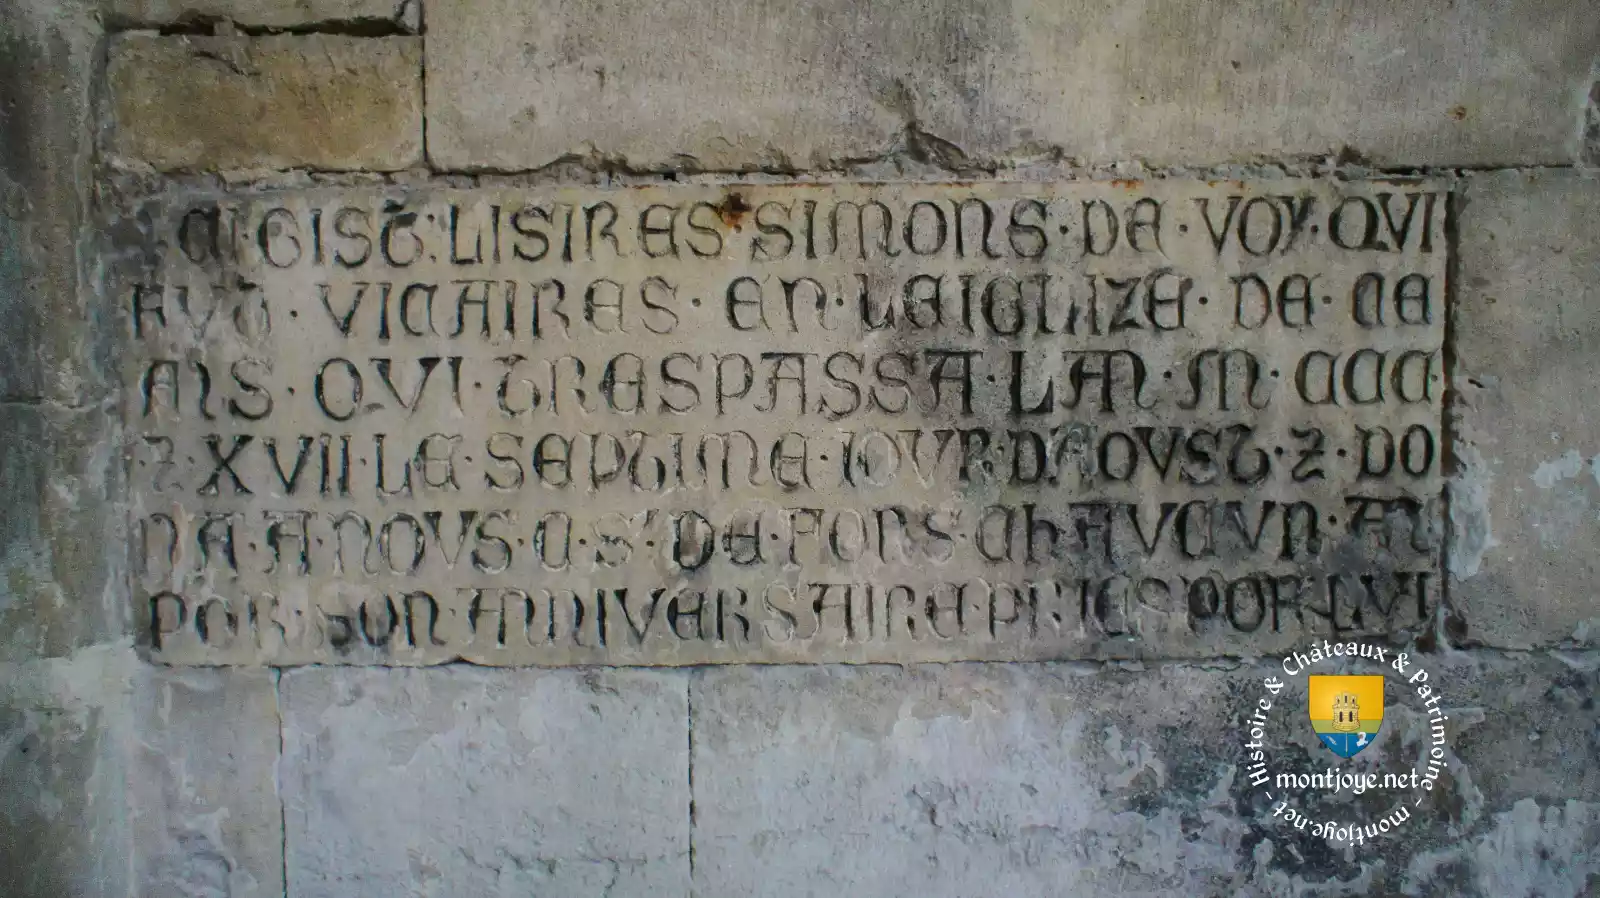 CI·GIST:LISIRES·SIMONS·DE·VOY·QVI
FVT·VICAIRES·EN·LEIGLIZE·DE·CE
ANS·QVI·TRESPASSA·LAN·M·CCC
⁊·XVII·LE·SEPTIME·IOVR·DAOVST·⁊·DO
NA·A·NOVS·C·S'·DE·FORS·CHAVCVN·AN
POR·SON·ANNIVERSAIRE·PRIES·POR·LVI
Histoire & Châteaux & patrimoine - montjoye.net -
montjoye.net